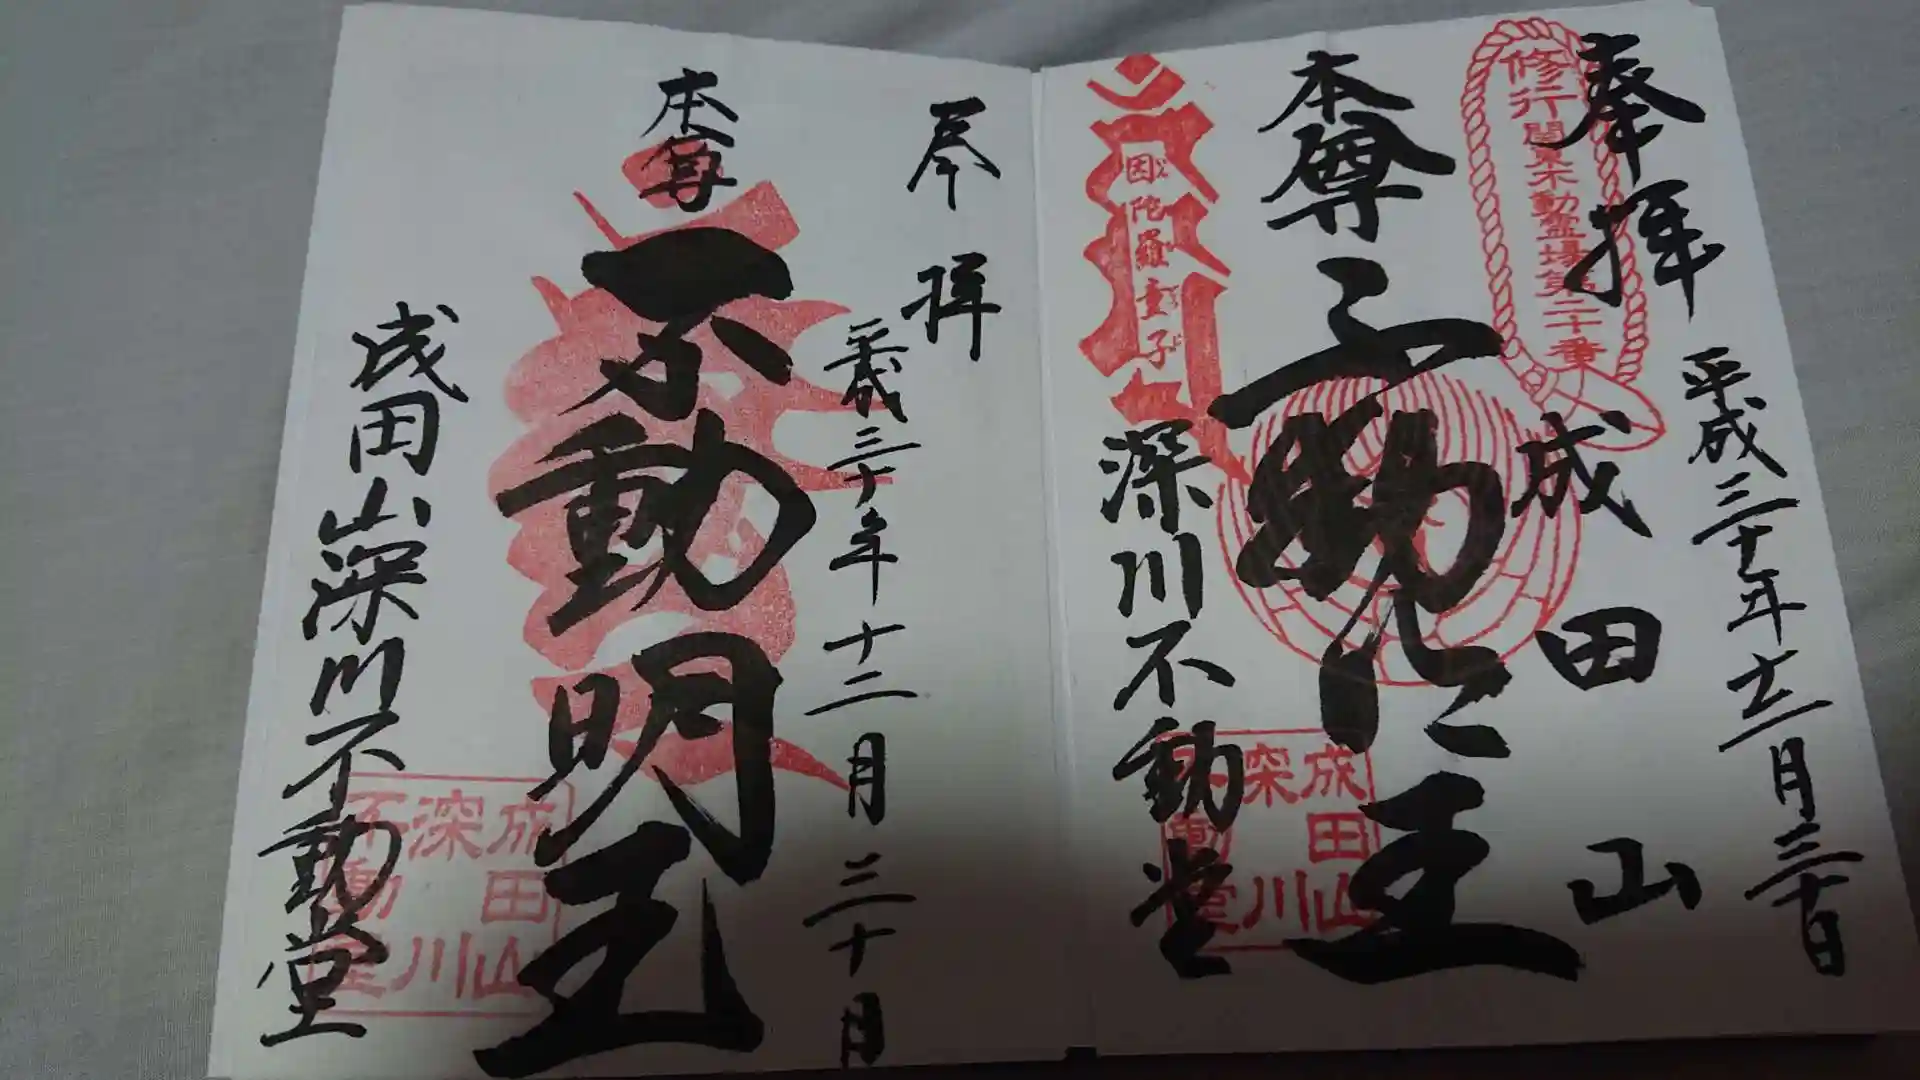 奉拝
平成三十年十二月三十日
修行関東不動霊場第二十番
成田山
本尊
不動明王
因陀羅童子
深川不動堂
成田山
深川
不動堂
奉拝
平成三十年十二月三十日
本尊
不動明王
成田山深川不動堂
成田山
深川
不動堂